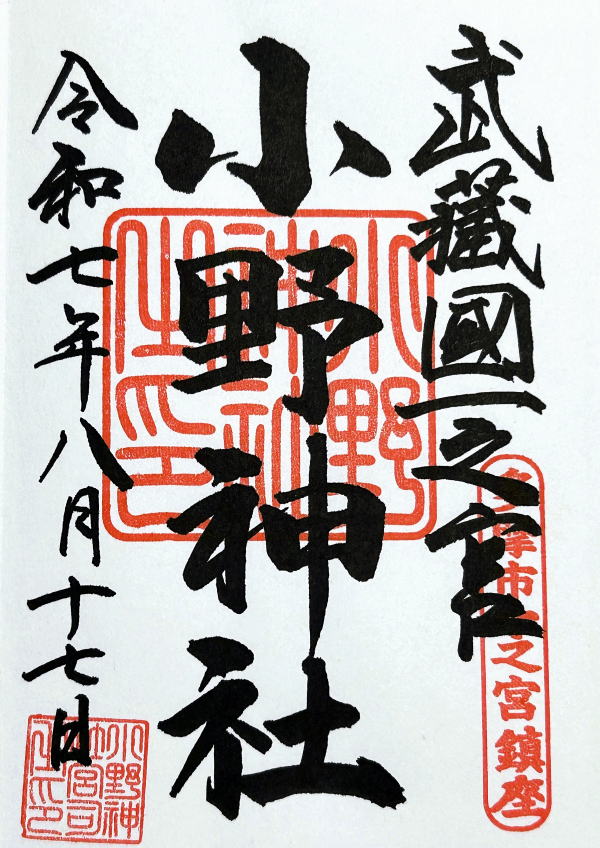 武藏國一之宮
多摩市一之宮鎮座
小野神社
小野神社之印
令和七年八月十七日
小野神社宮司之印